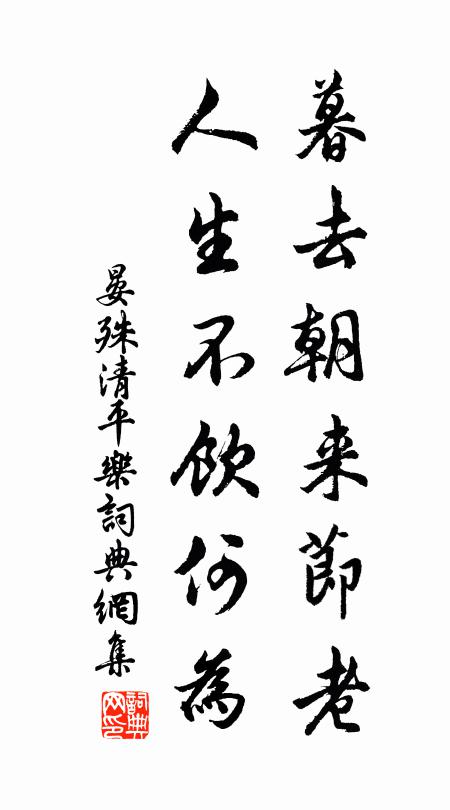 暮去朝来節老
人生不飲何為
晏殊清平樂詞典網集
詞典網印